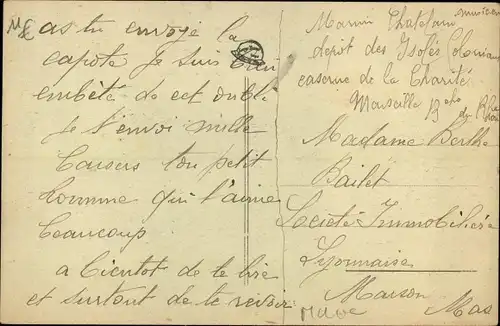 as tu envoyé la
capote je suis bien
embêté de cet oubli
je t'envoi mille
baisers ton petit
homme qui t'aime
beaucoup
a bientot de te lire
et surtout de te revoir
musicien
depot des Isolés Coloniaux
caserne de la Charité
Marseille Bche du Rhone
Madame Berthe
Bailet
Société Immobilière
Lyonnaise
Maison